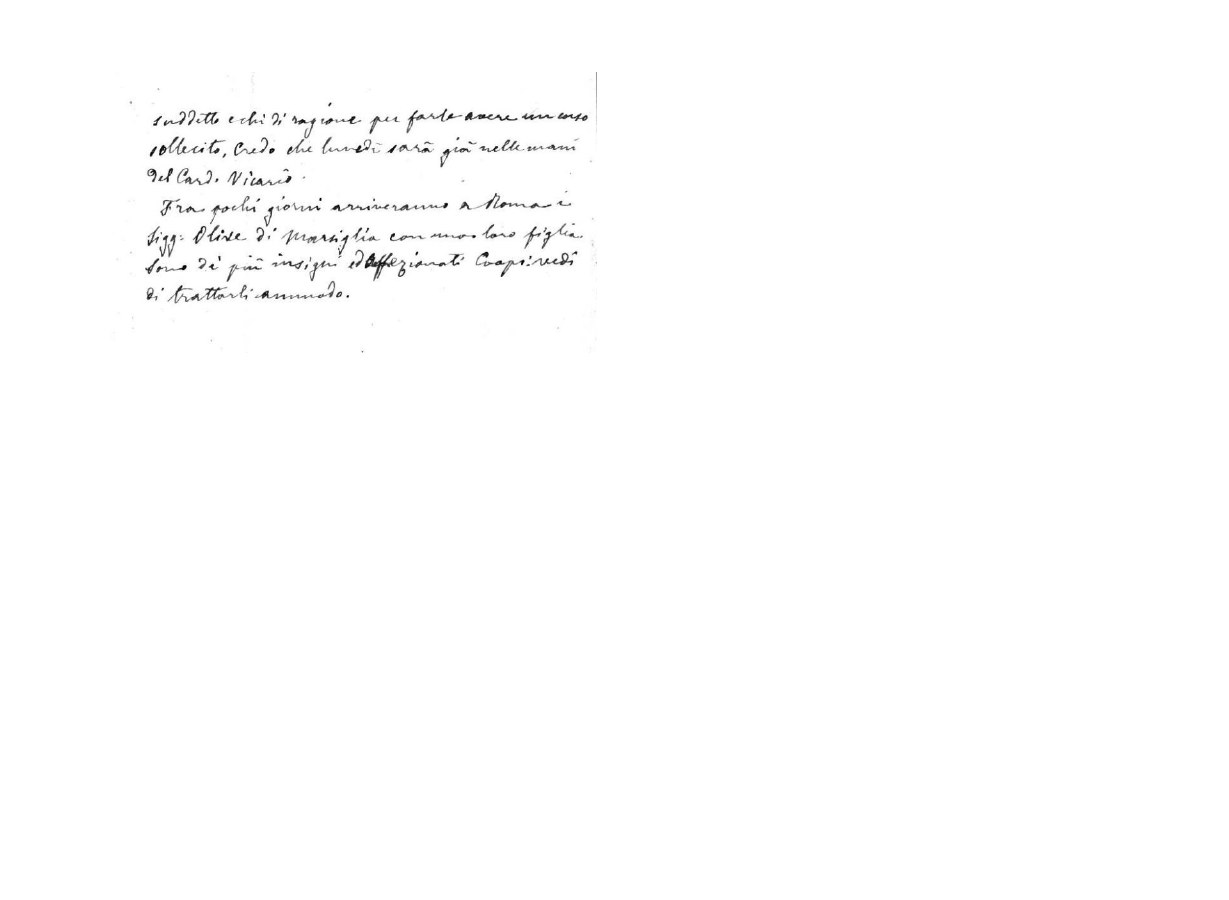 suddetto e chi di ragione per farle avere un corso
sollecito, Credo che lunedì sarà già nelle mani
del Card. Vicario.
Fra pochi giorni arriveranno a Roma i
Sigg. Olive di Marsiglia con una loro figlia
sono de' più insigni ed affezionati Coop: vedi
di trattarli ammodo.